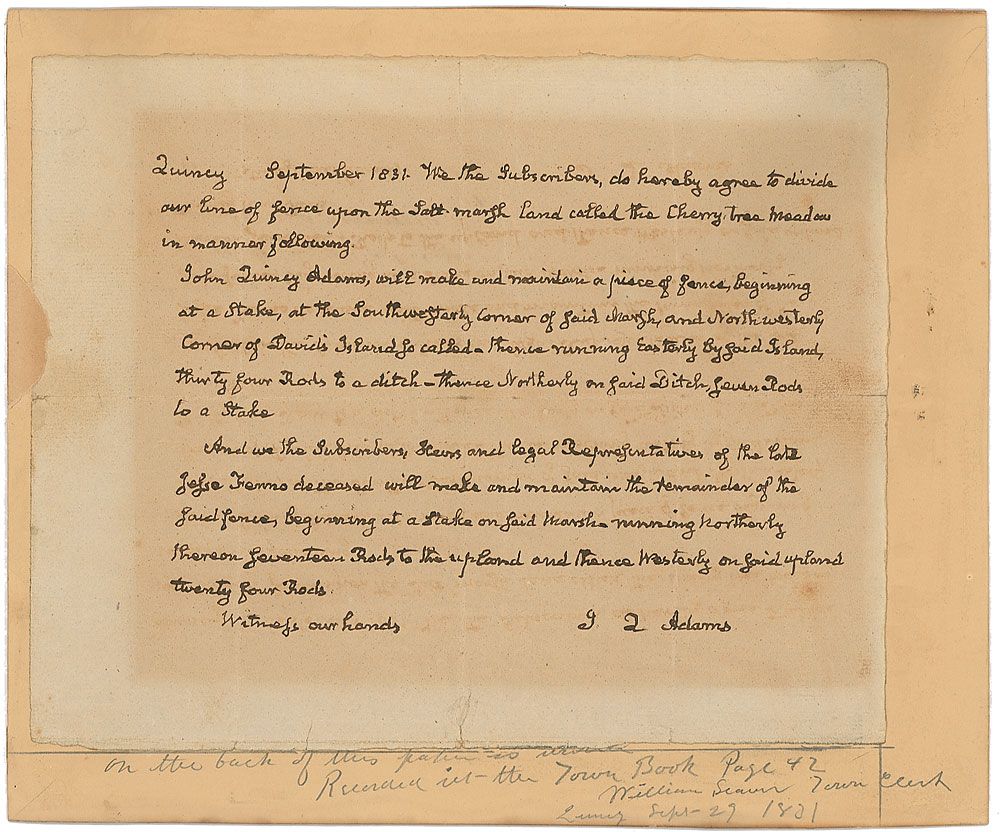 Quincy September 1831. We the Subscribers, do hereby agree to divide
our line of fence upon the Salt-marsh land called the Cherry tree Meadow
in manner following.
John Quincy Adams, will make and maintain a piece of fence, beginning
at a Stake, at the Southwesterly Corner of said Marsh, and Northwesterly
Corner of Davids Island so called - thence running Easterly by said Island,
thirty four Rods to a ditch - thence Northerly on said Ditch, seven Rods
to a Stake
And we the Subscribers, Heirs and legal Representatives of the late
Jesse Fenno deceased will make and maintain the remainder of the
said fence, beginning at a Stake on said Marsh - running Northerly
thereon seventeen Rods to the upland and thence Westerly on said upland
twenty four Rods.
Witness our hands J Q Adams.
on the back of this paper is
Recorded in the Town Book Page 42
William Seaver Town Clerk
Quincy Sept - 29 1831